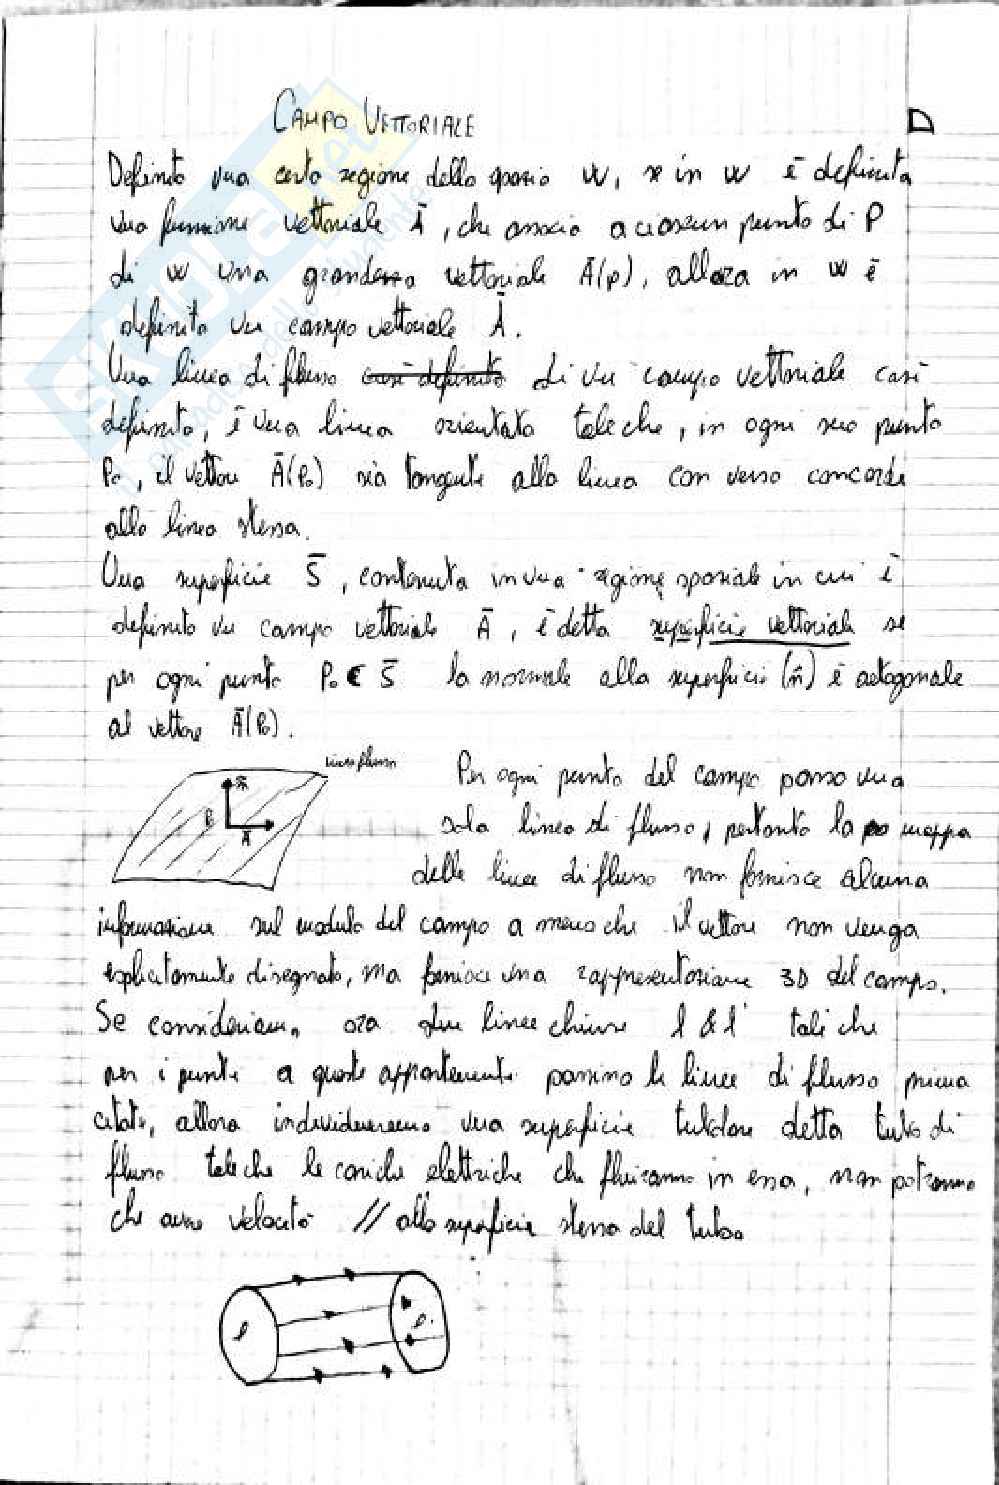 CAMPO VETTORIALE
Definita una certa regione dello spazio W, se in W è definita
una funzione vettoriale Ā, che associa a ciascun punto di P
di W una grandezza vettoriale Ā(p), allora in W è
definito un campo vettoriale Ā.
Una linea di flusso così definita di un campo vettoriale così
definito, è una linea orientata tale che, in ogni suo punto
P₀, il vettore Ā(P₀) sia tangente alla linea con verso concorde
alla linea stessa.
Una superficie S̄, contenuta in una regione spaziale in cui è
definito un campo vettoriale Ā, è detta superficie vettoriale se
per ogni punto P₀ ∈ S̄ la normale alla superficie (n̂) è ortogonale
al vettore Ā(P₀).
linea flusso
n̂
P₀
Ā
Per ogni punto del campo passa una
sola linea di flusso, pertanto la mappa
delle linee di flusso non fornisce alcuna
informazione sul modulo del campo a meno che il vettore non venga
esplicitamente disegnato, ma fornisce una rappresentazione 3D del campo.
Se consideriamo ora due linee chiuse l & l' tali che
per i punti a queste appartenenti passino le linee di flusso prima
citate, allora individueremo una superficie tubolare detta tubo di
flusso tale che le cariche elettriche che fluiranno in essa, non potranno
che avere velocità // alla superficie stessa del tubo
l
l'